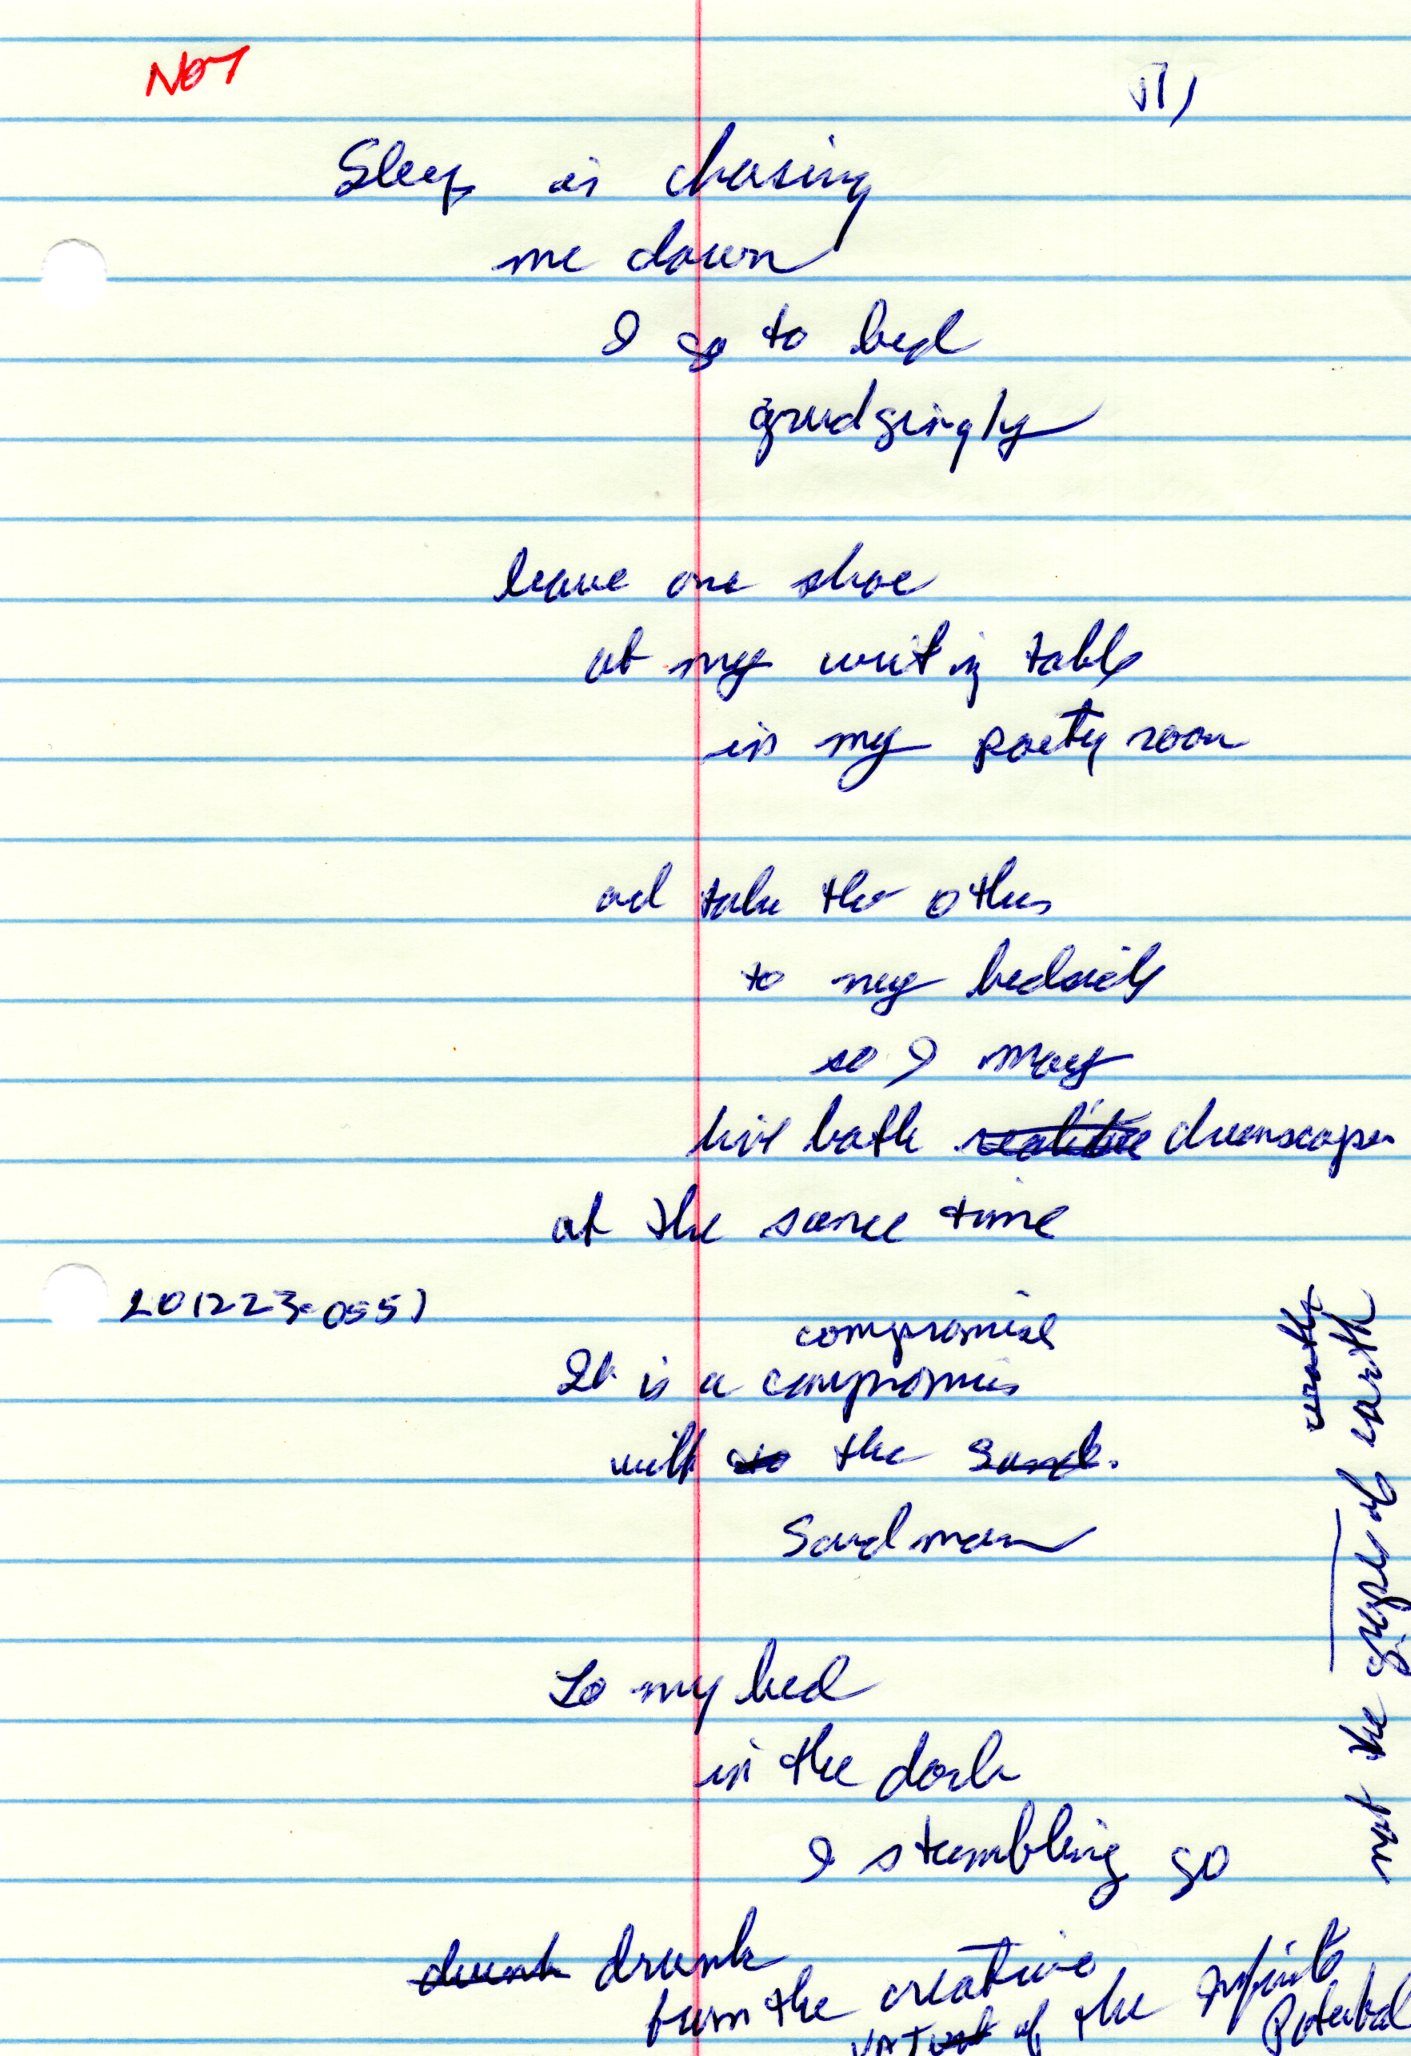 Not
Sleep is chasing
me down
I go to bed
grudgingly
leave one shoe
at my writing table
in my poetry room
and take the other
to my bedside
so I may
live both realities dreamscapes
at the same time
201223-0551
compromise
It is a compromis
with to the Sand.
Sandman
To my bed
in the dark
I stumbling go
drunk drunk
from the creative
of the Infinite
Potential
wrath
not the grapes of earth